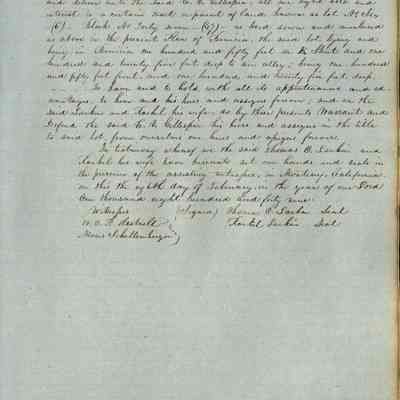 and deliver unto the said C. A. Gillespie, all our right title and
interest to a certain tract or parcel of land, known as lot No. Six
(6) Block No. Forty nine (49) as laid down and numbered
as above in the present Plan of Benicia the said lot, lying and
being in Benicia one hundred and fifty feet on K Street and one
hundred and twenty five feet deep to an alley; being one hundred
and fifty feet front, and one hundred, and twenty five feet deep.
To have and to hold with all its appurtenances and ad-
vantages, to him and his heirs and assigns forever; and we the
said Larkin and Rachel his wife, do by these presents Warrant and
defend the said C. A. Gillespie his heirs and assigns in the title
to said lot, from ourselves our heirs and assigns forever.
In testimony whereof we the said Thomas O. Larkin and
Rachel his wife have hereunto set our hands and seals in
the presence of the assisting witnesses, in Monterey, California
on this the eighth day of February, in the year of our Lord
One thousand eight hundred and forty nine.
Witnesses (Signed) Thomas O. Larkin Seal
W. E. P. Rachel Larkin Seal
Moses Schallenberger